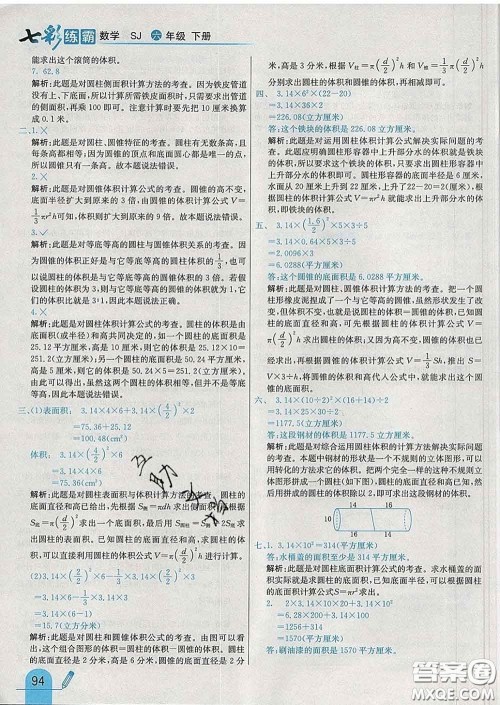 七彩练霸 数学 SJ 六年级 下册
能求出这个滚筒的体积。
7. 62.8
解析:此题是对圆柱侧面积计算方法的考查。因为铁皮管道
没有上、下底面,所以求所需铁皮面积时,只需要求出侧面的
面积,再乘100即可。注意计算时要先把10厘米换算
成0.1米。
二、1.×
解析:此题是对圆柱、圆锥特征的考查。圆柱有无数条高,且
每条高都相等;因为圆锥的顶点和底面圆心都是唯一的,所
以圆锥只有一条高。故本题说法错误。
2.×
解析:此题是对圆锥体积计算公式的考查。圆锥的高不变,
底面半径扩大到原来的3倍,则圆锥的体积计算公式V=
1/3πr²h,体积则扩大到原来的9倍。故本题说法错误。
3.×
解析:此题是对等底等高的圆柱与圆锥体积关系的考查。因
为圆锥的体积正好是与它等底等高的圆柱体积的1/3,也可
以说圆柱的体积是与它等底等高的圆锥体积的3倍。若不
是等底等高的圆锥和圆柱,则圆柱的体积与圆锥的体积之
比就不是3∶1,因此本题说法错误。
4.×
解析:此题是对圆柱体积计算公式的考查。圆柱的体积是由
底面积(或半径)和高共同决定的,如一个圆柱的底面积是
25.12平方厘米,高是10厘米,则它的体积是25.12×10=
251.2(立方厘米);另一个圆柱的底面积是50.24平方厘米,
高是5厘米,则它的体积是50.24×5=251.2(立方厘米)。
由此看出,虽然这两个圆柱体积相等,但不一定等底等高。
三、(1)表面积:3.14×4×6+3.14×(4/2)²×2
=75.36+25.12
=100.48(cm²)
体积:3.14×(4/2)²×6
=3.14×4×6
=75.36(cm³)
解析:此题是对圆柱表面积与体积计算方法的考查。圆柱的
底面直径和高已知,先根据S侧=πdh求出侧面积,再根据
S底=π(d/2)²求出底面积,最后用S表=S侧+2S底求
出圆柱的表面积。因为圆柱的底面直径和高已知,求体积
时,可以直接利用圆柱的体积公式V=π(d/2)²h进行计算。
(2)3.14×(2/2)²×6-1/3×3.14×(2/2)²×3
=3.14×6-3.14×1
=3.14×(6-1)
=15.7(立方分米)
解析:此题是对圆柱和圆锥体积公式的考查。由图可以看
出,这是一个组合图形,是在圆柱中挖去一个圆锥。圆柱的
底面直径是2分米,高是6分米;圆锥的底面直径是2分
94
米,高是3分米。先根据圆柱的体积公式V=π(d/2)²h和
圆锥的体积公式V=1/3π(d/2)²h分别求出它们的体积,再
求出圆柱的体积与圆锥的体积之差即可。
四、3.14×6²×(22-20)
=3.14×36×2
=226.08(立方厘米)
答:这个铁块的体积是226.08立方厘米。
解析:此题是对运用圆柱体积公式解决实际问题的考
查。此题应明确圆柱形容器中上升部分水的体积就是铁块
的体积。因为圆柱形容器中上升部分水的底面积和圆柱形
容器的底面积相同,所以上升部分水的底面半径是6厘米,
水面从20厘米上升到22厘米,则上升部分水的高度是
22-20=2(厘米)。根据圆柱的体积公式V=πr²h求出上
升部分水的体积,即铁块的体积。
五、3.14×(1.6/2)²×5×3÷5
=3.14×0.64×3
=6.0288(平方厘米)
答:这个圆锥的底面积是6.0288平方厘米。
解析:此题是对圆柱和圆锥体积公式的考查。把一个圆
柱形橡皮泥捏成了一个与它等高的圆锥,虽然形状改变了,
但体积不变,也就是说圆柱的体积和圆锥的体积相等。因
为已知圆柱的底面直径和高,可先利用圆柱的体积公式
V=π(d/2)²h求出圆柱的体积,也就是圆锥的体积。因为
已经求出圆锥的体积,再根据公式V=1/3Sh,推导出S=
V×3÷h,将圆锥的体积和高代入公式中,就能求出这个圆
锥的底面积。
六、3.14×(10/2)²×(16+14)÷2
=3.14×25×30÷2
=1177.5(立方厘米)
答:这段钢材的体积是1177.5立方厘米。
解析:此题是对综合运用圆柱体积的计算方法解决实际问题
的考查。本题中钢材的形状不是一个规则的圆柱,可以利
用转化的方法求它的体积。把两个同样的钢材拼成如图所
示的一个圆柱,拼成的圆柱的底面直径是10厘米,高是
(16+14)厘米。先根据V=π(d/2)²h求出圆柱的体积,
然后用拼成的圆柱体积除以2,即可求出这段钢材的体积。
七、1. 3.14×10²=314(平方厘米)
答:水桶盖的面积至少是314平方厘米。
解析:此题是对圆柱底面积计算公式的考查。求水桶盖的面
积实际就是求水桶的底面积。因为已知底面半径,可以根据
圆柱的底面积计算公式S=πr²求出。
2. 2×3.14×10×20+3.14×10²
=1256+314
=1570(平方厘米)
答:刷油漆的面积是1570平方厘米。
答案圈
MXQE.COM